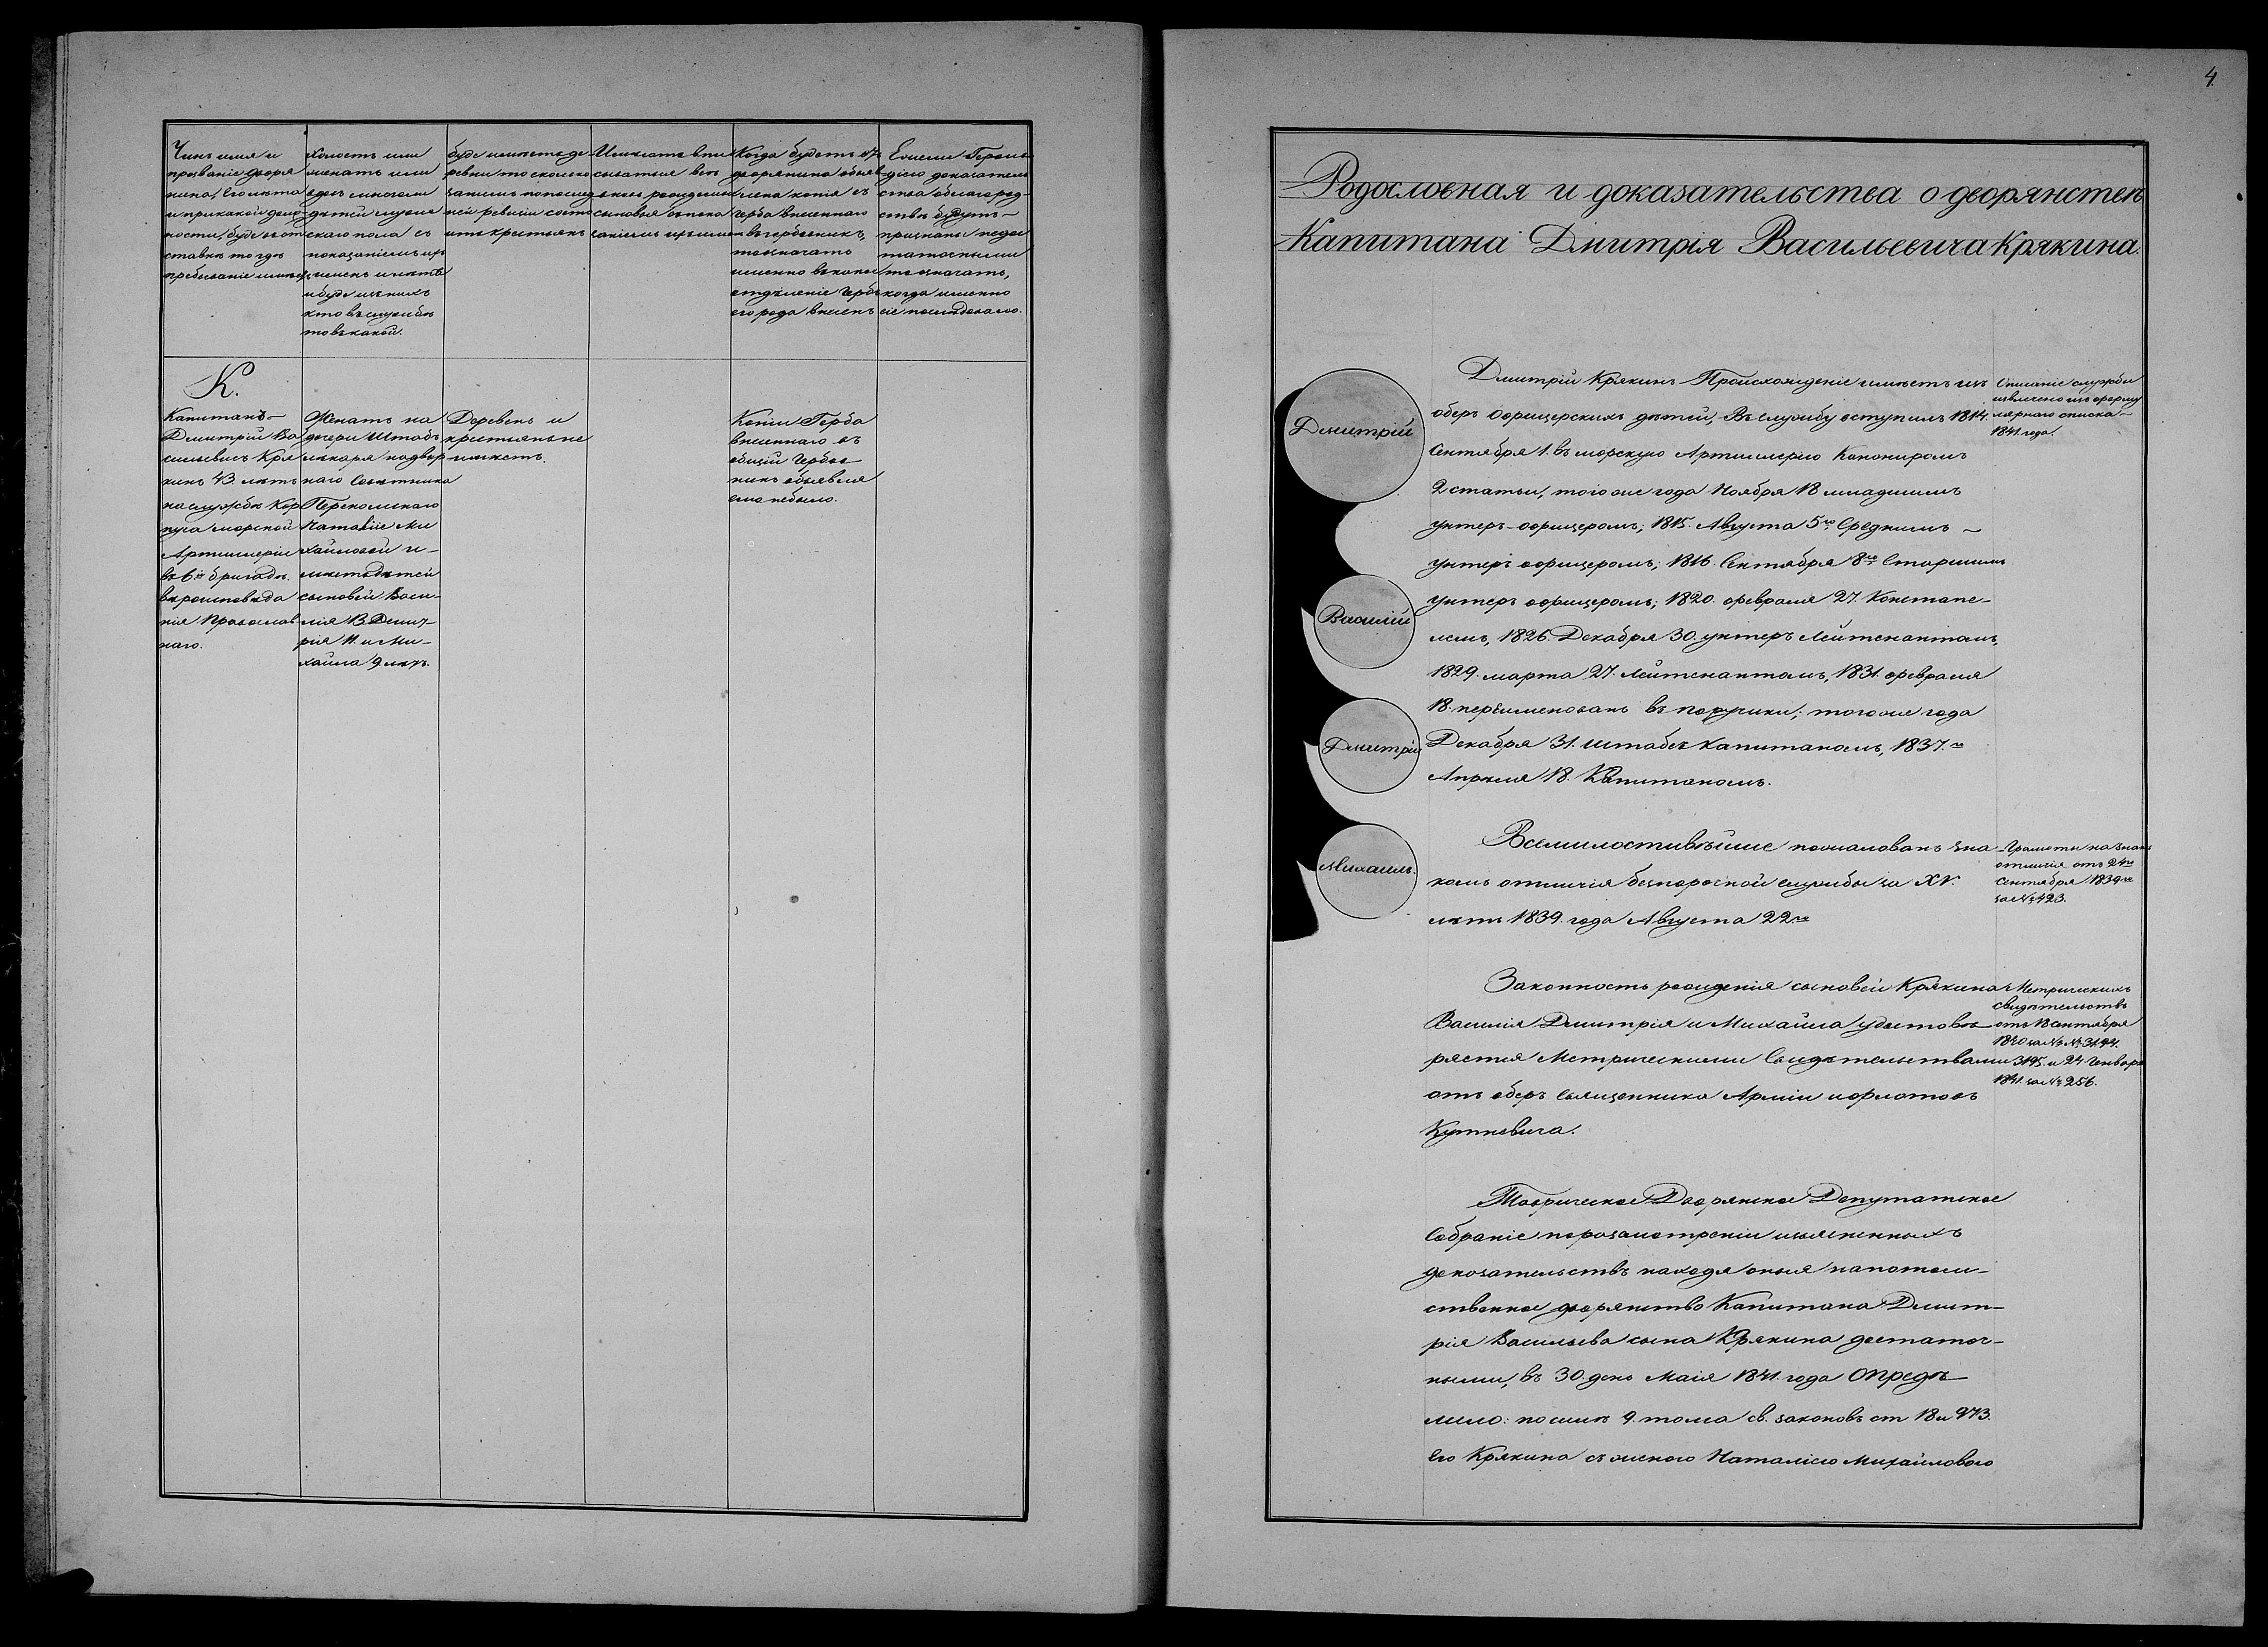 Чинъ имя и
прозваніе дворя
нина, Его лѣта
и при какой долж
ности, буде въ от
ставкѣ то гдѣ
пребываніе имѣетъ
холостъ или
женатъ или
вдовъ многоли
дѣтей мужес
скаго пола съ
показаніемъ ихъ
именъ и лѣтъ
и буде изъ нихъ
кто въ службѣ
то въ какой.
буде имѣетъ де
ревни то сколько
за нимъ по послѣд
ней ревизіи состо
итъ крестьянъ
Когда будетъ
дворянина объяв
лена копія съ
герба внесеннаго
въ гербовникъ,
то означать
именно въ какое
отдѣленіе гербъ
его рода внесенъ
Ежели Героль
діею доказатель
ства о благород
ствѣ будутъ
признаны недос
таточными
то означать,
когда именно
сіе послѣдовало.
К.
Капитанъ
Дмитрій Ва
сильевичъ Кря
кинъ 43. лѣтъ
на службѣ Кор
пуса морской
Артиллеріи
въ 6й бригадѣ.
вѣроисповѣда
нія Православ
наго.
Женатъ на
дочери Штабъ
лѣкаря надвор
наго Совѣтника
Перекомскаго
Наталіи Ми
хайловой и
имѣетъ дѣтей
сыновей Васи-
лія 13. Дмит
рія 11. и Ми-
хаила 9. лѣтъ.
Деревень и
крестьянъ не
имѣетъ.
Копіи Герба
внесеннаго въ
общій гербов
никъ объявля
емо небыло.
4.
Родословная и доказательства о дворянствѣ
Капитана Дмитрія Васильевича Крякина.
Дмитрій
Василій
Дмитрій
Михаилъ.
Дмитрій Крякинъ Происхожденіе имѣетъ изъ
оберъ офицерскихъ дѣтей, Въ службу вступилъ 1814.
Сентября 1. въ морскую Артиллерію Канониромъ
2 статьи, того же года Ноября 18 младшимъ
унтеръ-офицеромъ; 1815. Августа 5го Среднимъ
унтеръ офицеромъ; 1816. Сентября 8го Старшимъ
унтеръ офицеромъ; 1820. февраля 27. Констапе-
лемъ, 1826. Декабря 30. унтеръ Лейтенантомъ,
1829. марта 27. Лейтенантомъ, 1831. февраля
18. переименованъ въ поручики; того же года
Декабря 31. штабсъ капитаномъ, 1837.го
Апрѣля 18. Капитаномъ.
Описаніе службы
извлечено изъ форму
лярнаго списка
1841. года.
Всемилостивѣйше пожалованъ зна
комъ отличія безпорочной службы за XV.
лѣтъ 1839. года Августа 22.го
Грамоты на знакъ
отличія отъ 24го
Сентября 1839го
за № 423.
Законность рожденія сыновей Крякина
Василія Дмитрія и Михаила удостовѣ
ряется Метрическими Свидѣтельствами
отъ оберъ Священника Арміи и флотовъ
Кутневича.
Метрическихъ
свидѣтельствъ
отъ 18 сентября
1840 за №№ 3194.
3195. и 24 Генваря
1841. за № 256.
Таврическое Дворянское Депутатское
Собраніе по разсмотреніи изъясненныхъ
доказательствъ находя оныя на потом-
ственное дворянство Капитана Дмит-
рія Васильева сына Крякина достаточ-
ными, въ 30. день Маія 1841. года Опредѣ
лило: по силѣ 9. тома св. законовъ ст 18 и 973.
Его Крякина съ женою Наталіею Михайловою